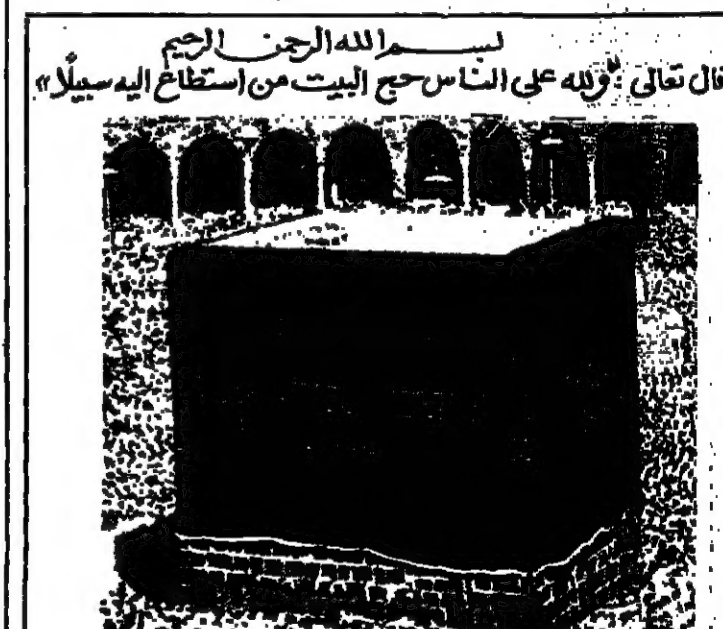 بسم الله الرحمن الرحيم
قال تعالى : "ولله على الناس حج البيت من استطاع اليه سبيلًا»